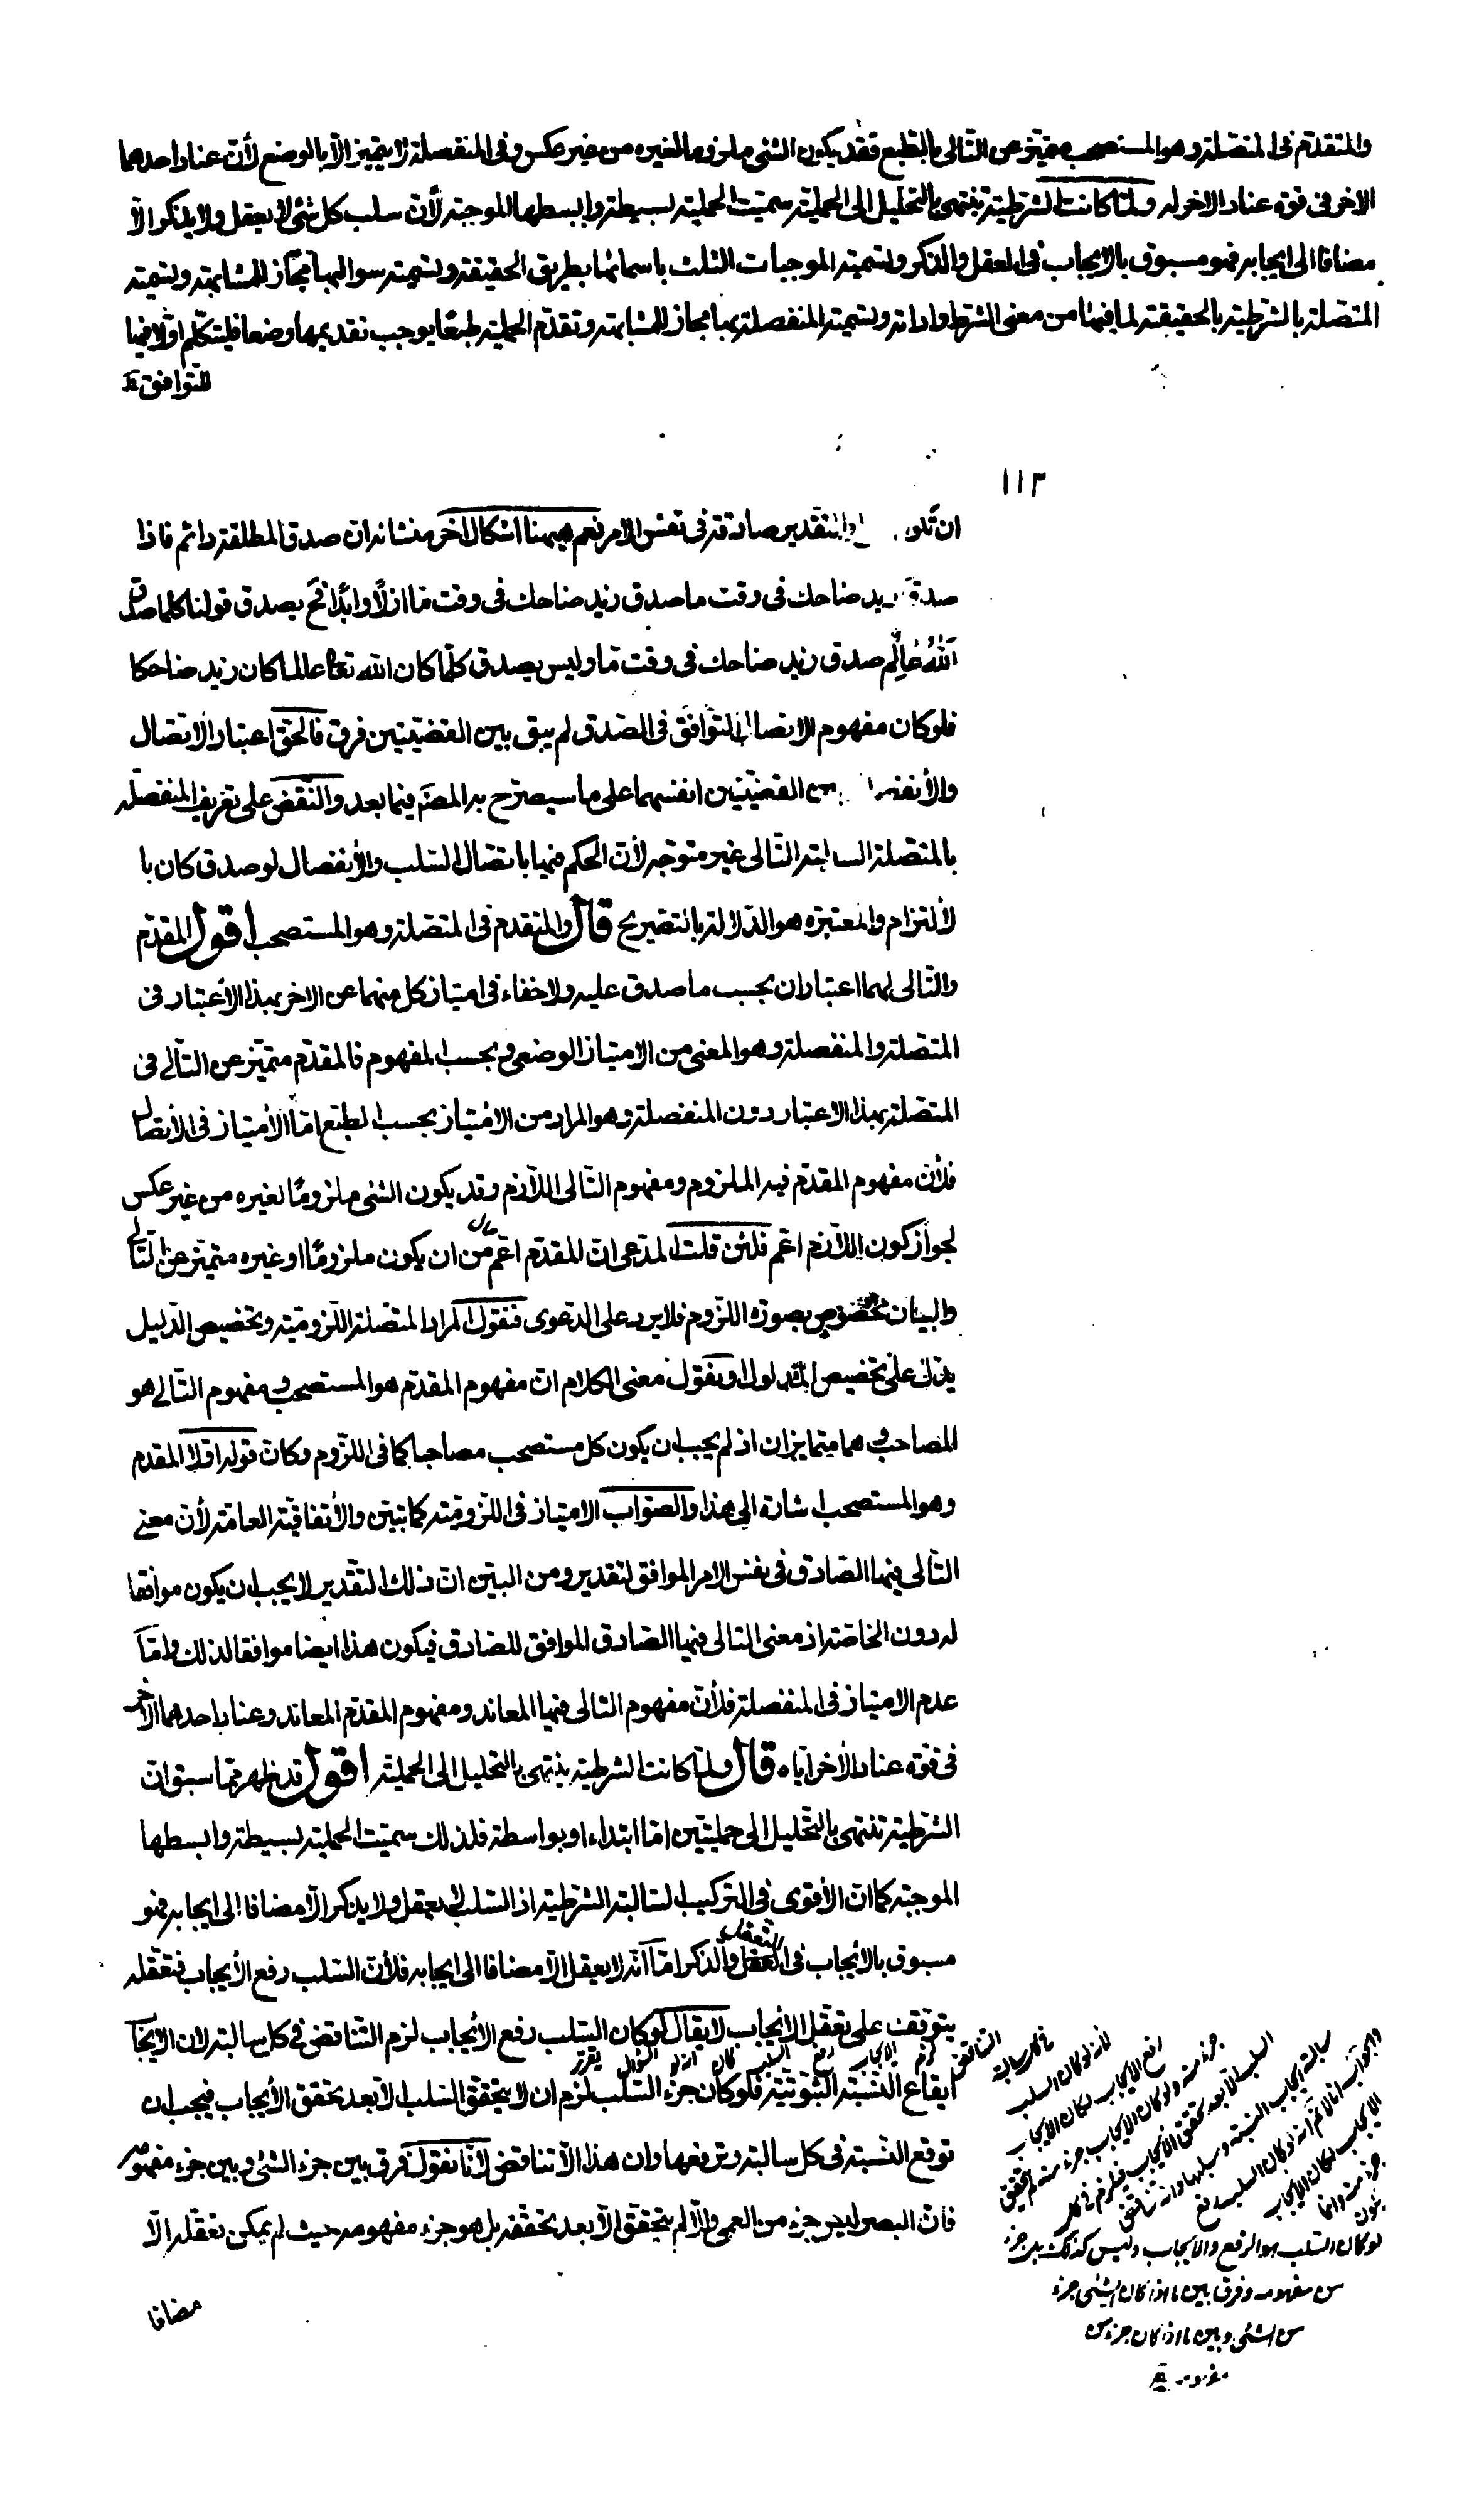 والمتقدّم فى المتصلة وهو المستصحب متميّز عن التّالى بالطبع فقد يكون الشئ ملزوما لغيره من غير عكس وفى المنفصلة لا يتميز الاّ بالوضع لأنّ عناد احدهما
الاخر فى قوة عناد الاخر له ولمّا كانت الشرطية تنتهى بالتحليل الى الحملية سميّت الحملية بسيطة وابسطها الموجبة لأنّ سلب كل شئ لا يعقل ولا يذكر الاّ
مضافا الى ايجابه فهو مسبوق بالايجاب فى العقل والذكر وتسمية الموجبات الثلث باسمائها بطريق الحقيقة وتسمية سوالبها مجاز للمشابهة وتسمية
المتصلة بالشرطية بالحقيقة لما فيها من معنى الشرط واداته وتسمية المنفصلة بها مجاز للمشابهة وتقدّم الحملية طبعًا يوجب تقديمها وضعا فليتكلّم اوّلا فيها
للتّوافق
١١٣
التقدير صادقة فى نفس الامر نعم ههنا اشكال اخر منشائه ان صدق المطلقة دائم فاذا
صدق زيد ضاحك فى وقت ما صدق زيد ضاحك فى وقت مّا ازلاً وابدًا فح يصدق قولنا كلما صدق
اللهُ عالِمٌ صدق زيد ضاحك فى وقت مّا وليس يصدق كلّما كان الله تعا عالما كان زيد ضاحكا
فلو كان مفهوم الاتصال التّوافق فى الصّدق لم يبق بين القضيّتين فرق فالحق اعتبار الاتّصال
والأنفصال بين القضيّتين انفسهما على ما سيصرّح به المصنّ فيما بعد والنّقض على تعريف المنفصلة
بالمتصلة السالبة التّالى غير متوجه لأنّ الحكم فيها باتصال السّلب والأنفصال لو صدق كان با
لألتزام والمعتبرة هو الدّلالة بالتّصريح قال والمتقدم فى المتصلة وهو المستصحب اقول المقدّم
والتّالى لهما اعتباران بحسب ما صدق عليه ولا خفاء فى امتياز كل منهما عن الاخر بهذا الأعتبار فى
المتصلة والمنفصلة وهو المعنى من الامتياز الوضعى وبحسب المفهوم فالمقدّم متميّز عن التّالى فى
المتصلة بهذا الاعتبار دون المنفصلة وهو المراد من الامتياز بحسب الطبع امّا الأمتياز فى الأتصال
فلأنّ مفهوم المقدّم فيه الملزوم ومفهوم التّالى اللاّزم وقد يكون الشئ ملزومًا لغيره من غير عكس
لجواز كون اللاّزم اعّم فلئن قلت المدّعى انّ المقدّم اعّم من ان يكون ملزومًا او غيره متميّز عن التّالى
والبيان مخصوص بصورة اللّزوم فلا يرد على الدعوى فنقول المراد المتصلة اللّزوميّة وتخصيص الدّليل
يدلّ على تخصيص المدلول او نقول معنى الكلام انّ مفهوم المقدّم هو المستصحب ومفهوم التّالى هو
المصاحب وهما متمايزان اذ لم يجب ان يكون كل مستصحب مصاحبا كما فى اللّزوم وكانّ قوله اوّلا المقدم
وهو المستصحب اشارة الى هذا والصّواب الامتياز فى اللّزوميّة كما تبيّن والأتفاقيّة العامّة لأنّ معنى
التّالى فيها الصّادق فى نفس الامر الموافق لتقدير ومن البيّن انّ ذلك التّقدير لا يجب ان يكون موافقا
له دون الخاصّة اذ معنى التالى فيها الصّادق الموافق للصّادق فيكون هذا ايضا موافقا لذلك وامّا
عدم الامتياز فى المنفصلة فلأنّ مفهوم التالى فيها المعاند ومفهوم المقدّم المعاند وعناد احدهما الاخر
فى قوّة عناد الأخر ايّاه قال ولمّا كانت الشرطية ينتهى بالتحليل الى الحملية اقول قد ظهر ممّا سبق انّ
الشّرطيّة تنتهى بالتّحليل الى حمليتين امّا ابتداء او بواسطة فلذلك سميّت الحملية بسيطة وابسطها
الموجبة كما انّ الأقوى فى التركيب السّالبة الشرطية اذ السّلب لا يعقل ولا يذكر الاّ مضافا الى ايجابه فهو
مسبوق بالأيجاب فى التعقل والذكر امّا انّه لا يعقل الاّ مضافا الى ايجابه فلأنّ السّلب رفع الأيجاب فتعقّله
يتوقف على تعقّل الأيجاب لا يقال لو كان السّلب رفع الأيجاب لزم التّناقض فى كل سالبة لأن الأيجاب
ايقاع النّسبة الثّبوتيّة فلو كان جزء السّلب لزم ان لا يتحقّق السّلب الاّ بعد تحقق الأيجاب فيجب ان
توقع النّسبة فى كل سالبة وترفعها وان هذا الاّ تناقض لأنّا نقول فرق بين جزء الشّئ وبين جزء مفهومه
فانّ البصر ليس جزء من العمى والاّ لم يتحقّق الاّ بعد تحقّقه بل هو جزء مفهومه حيث لم يمكن تعقّله الاّ
مضافا
لو كان السّلب هو الرفع والايجاب وليس كذلك بل جزء
من مفهومه وفرق بين ما اذا كان الشئ جزء
من الشئ وبين ما اذا كان جزء من
مفهومه